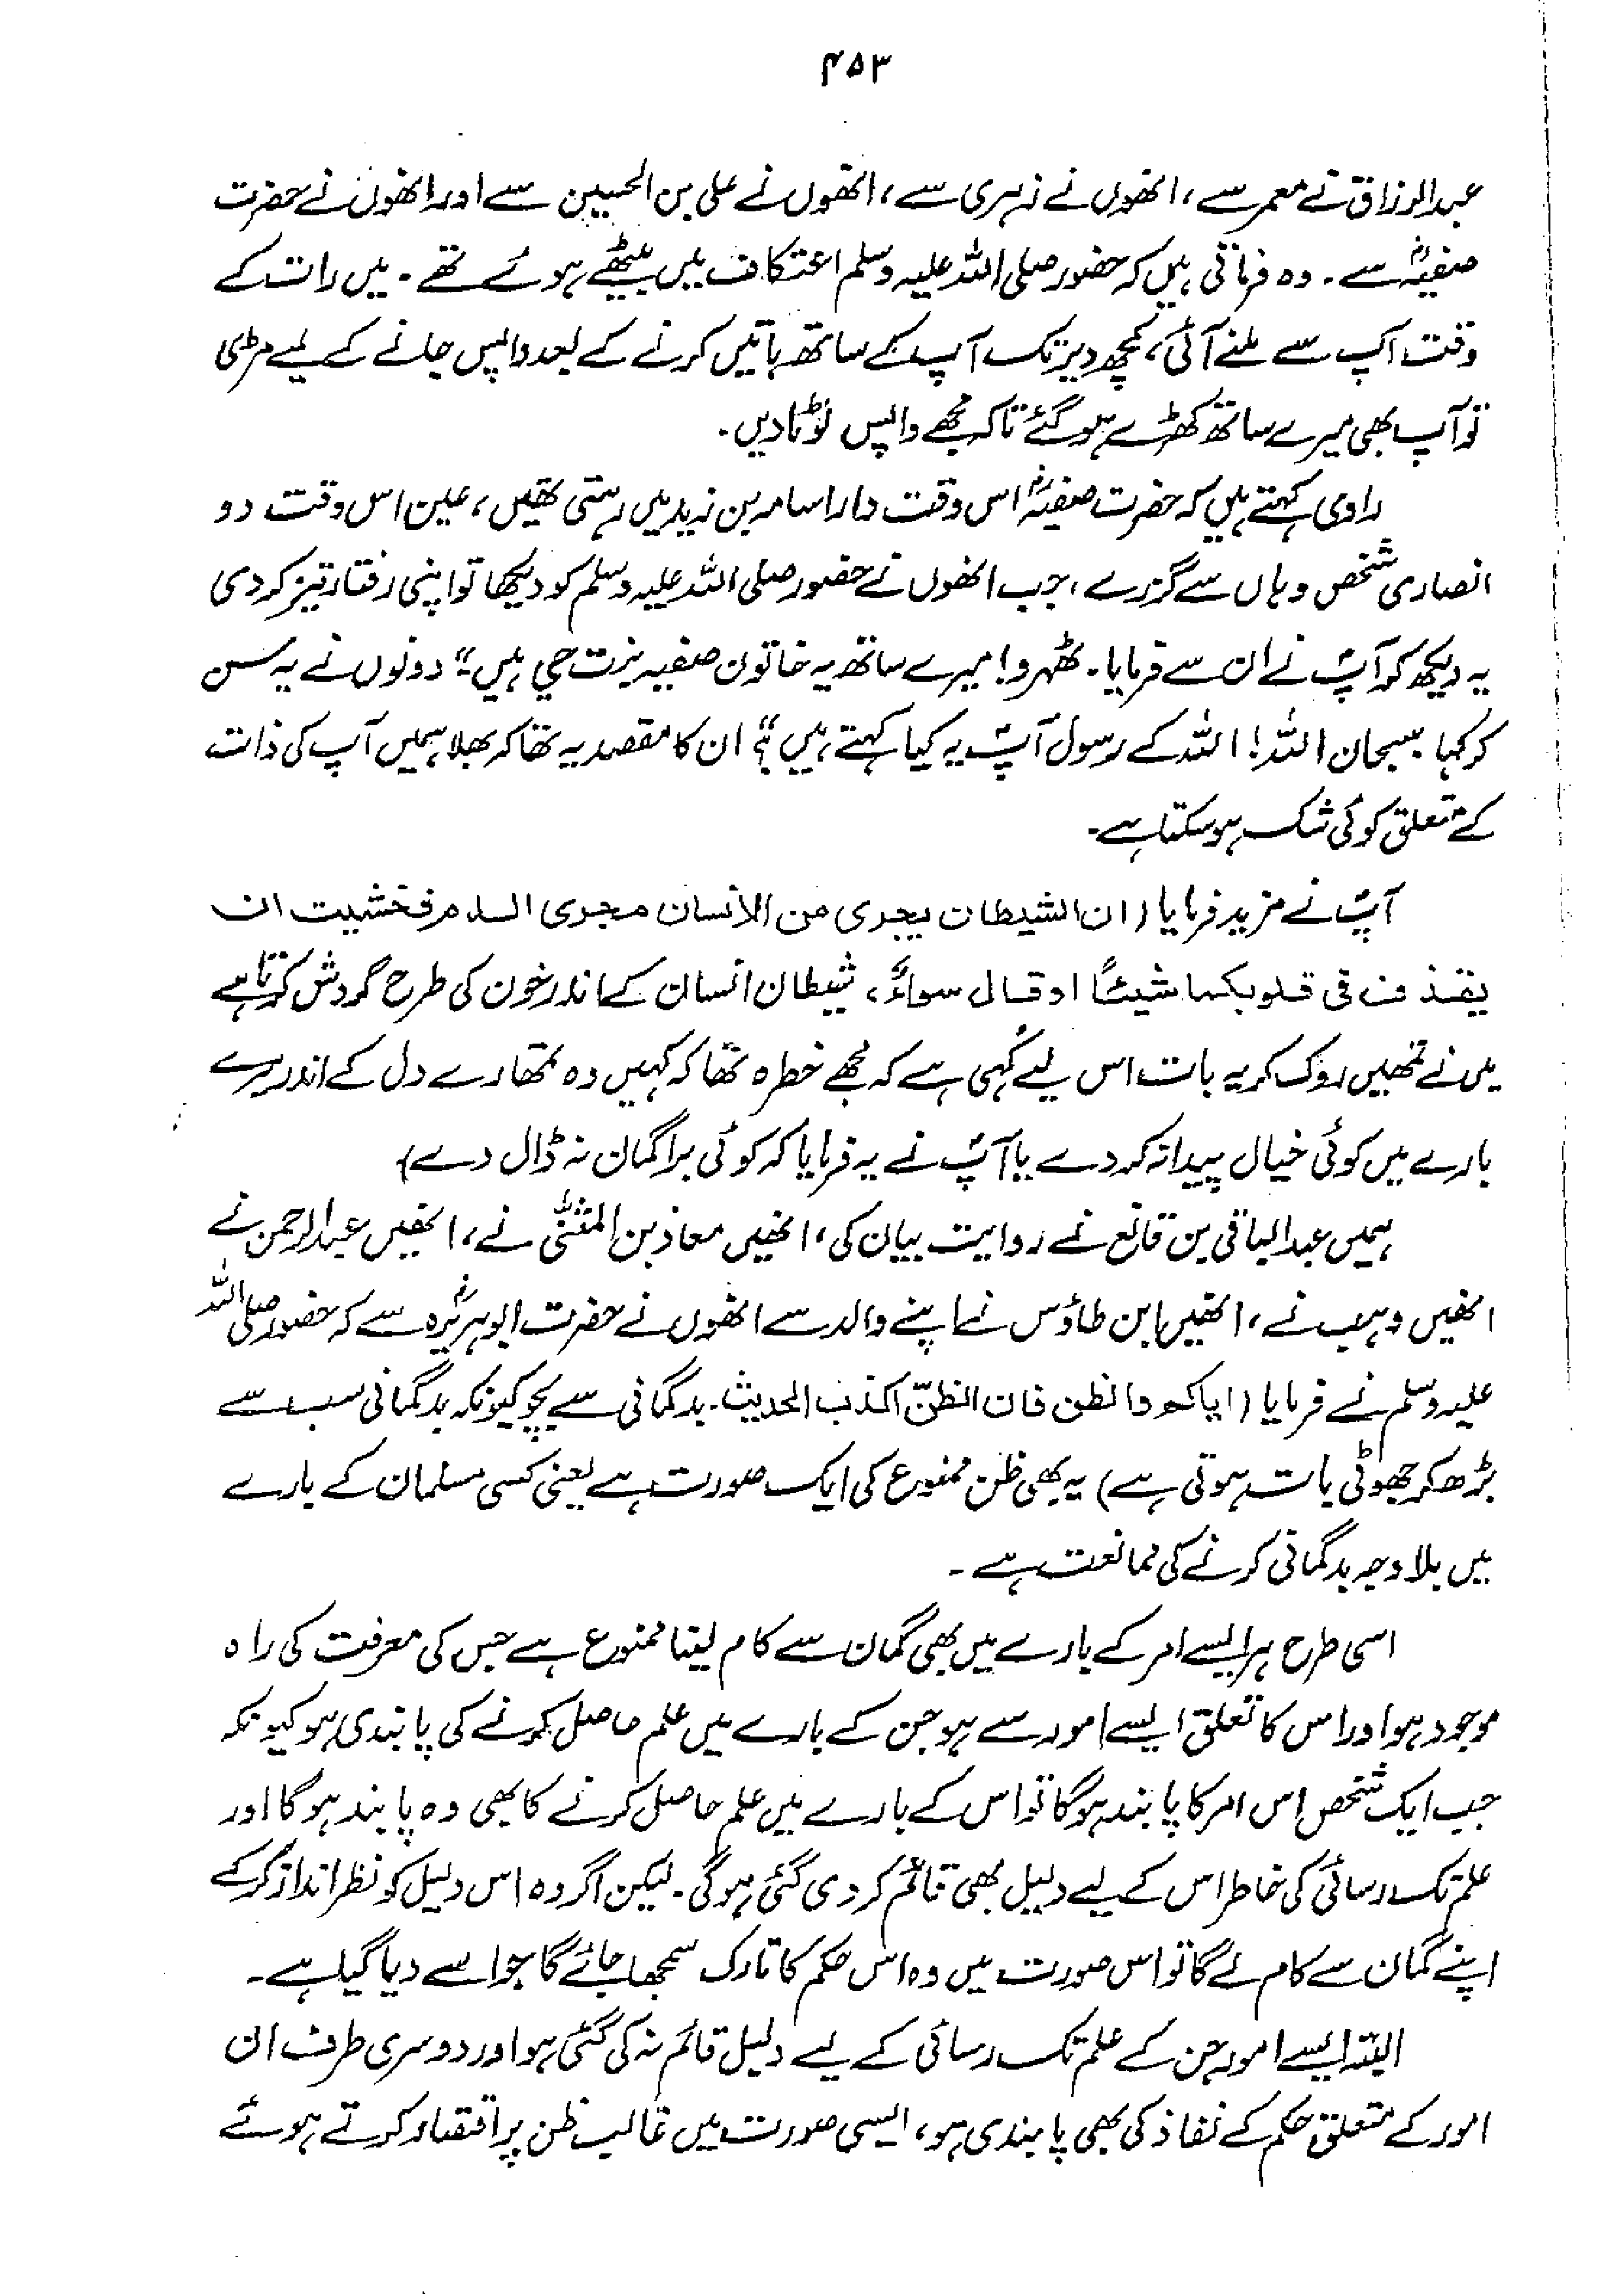 ۴۵۳
عبدالرزاق نے معمر سے، انھوں نے زہری سے، انھوں نے علی بن الحسین سے اور انھوں نے حضرت
صفیہؓ سے۔ وہ فرماتی ہیں کہ حضور صلی اللہ علیہ وسلم اعتکاف میں بیٹھے ہوئے تھے۔ میں رات کے
وقت آپ سے ملنے آئی، کچھ دیر تک آپ کے ساتھ باتیں کرنے کے بعد واپس جانے کے لیے مڑی
تو آپ بھی میرے ساتھ کھڑے ہو گئے تاکہ مجھے واپس لوٹا دیں۔
راوی کہتے ہیں کہ حضرت صفیہؓ اس وقت دار اسامہ بن زید میں رہتی تھیں، عین اس وقت دو
انصاری شخص وہاں سے گزرے، جب انھوں نے حضور صلی اللہ علیہ وسلم کو دیکھا تو اپنی رفتار تیز کر دی
یہ دیکھ کر آپؐ نے ان سے فرمایا۔ ٹھہرو! میرے ساتھ یہ خاتون صفیہ بنت حیی ہیں"؛ دونوں نے یہ سن
کر کہا سبحان اللہ! اللہ کے رسول آپؐ یہ کیا کہتے ہیں؟" ان کا مقصد یہ تھا کہ بھلا ہمیں آپ کی ذات
کے متعلق کوئی شک ہو سکتا ہے۔
آپؐ نے مزید فرمایا (ان الشیطان یجری من الانسان مجری الدم فخشیت ان
یقذف فی قلوبکما شیئًا او قال سوءً، شیطان انسان کے اندر خون کی طرح گردش کرتا ہے
میں نے تمھیں روک کر یہ بات اس لیے کہی ہے کہ مجھے خطرہ تھا کہ کہیں وہ تمھارے دل کے اندر میرے
بارے میں کوئی خیال پیدا نہ کر دے یا آپؐ نے یہ فرمایا کہ کوئی برا گمان نہ ڈال دے)
ہمیں عبدالباقی بن قانع نے روایت بیان کی، انھیں معاذ بن المثنیٰ نے، انھیں عبدالرحمن نے
انھیں وہیب نے، انھیں ابن طاؤس نے اپنے والد سے انھوں نے حضرت ابوہریرہؓ سے کہ حضور صلی اللہ
علیہ وسلم نے فرمایا (ایاکم والظن فان الظنّ اکذب الحدیث۔ بدگمانی سے بچو کیونکہ بدگمانی سب سے
بڑھ کر جھوٹی بات ہوتی ہے) یہ بھی ظن ممنوع کی ایک صورت ہے یعنی کسی مسلمان کے بارے
میں بلاوجہ بدگمانی کرنے کی ممانعت ہے۔
اسی طرح ہر ایسے امر کے بارے میں بھی گمان سے کام لینا ممنوع ہے جس کی معرفت کی راہ
موجود ہو اور اس کا تعلق ایسے امور سے ہو جن کے بارے میں علم حاصل کرنے کی پابندی ہو کیونکہ
جب ایک شخص اس امر کا پابند ہوگا تو اس کے بارے میں علم حاصل کرنے کا بھی وہ پابند ہوگا اور
علم تک رسائی کی خاطر اس کے لیے دلیل بھی قائم کر دی گئی ہوگی۔ لیکن اگر وہ اس دلیل کو نظر انداز کر کے
اپنے گمان سے کام لے گا تو اس صورت میں وہ اس حکم کا تارک سمجھا جائے گا جو اسے دیا گیا ہے۔
البتہ ایسے امور جن کے علم تک رسائی کے لیے دلیل قائم نہ کی گئی ہو اور دوسری طرف ان
امور کے متعلق حکم کے نفاذ کی بھی پابندی ہو، ایسی صورت میں غالب ظن پر اقتصار کرتے ہوئے